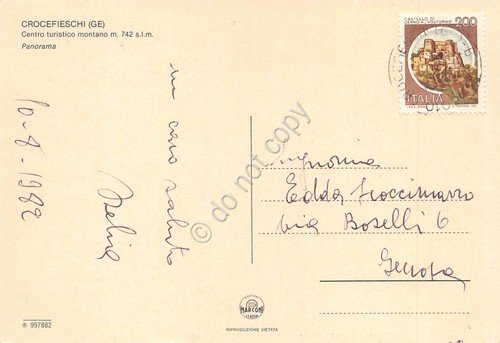 CROCEFIESCHI (GE)
Centro turistico montano m. 742 s.l.m.
Panorama
10-8-1982
un caro saluto
CASTELLO DI
CERRO AL VOLTURNO
200
ITALIA
Signorina
Edda
via Boselli 6
Genova
MARCONI
GENOVA
RIPRODUZIONE VIETATA
® 997882
© do not copy